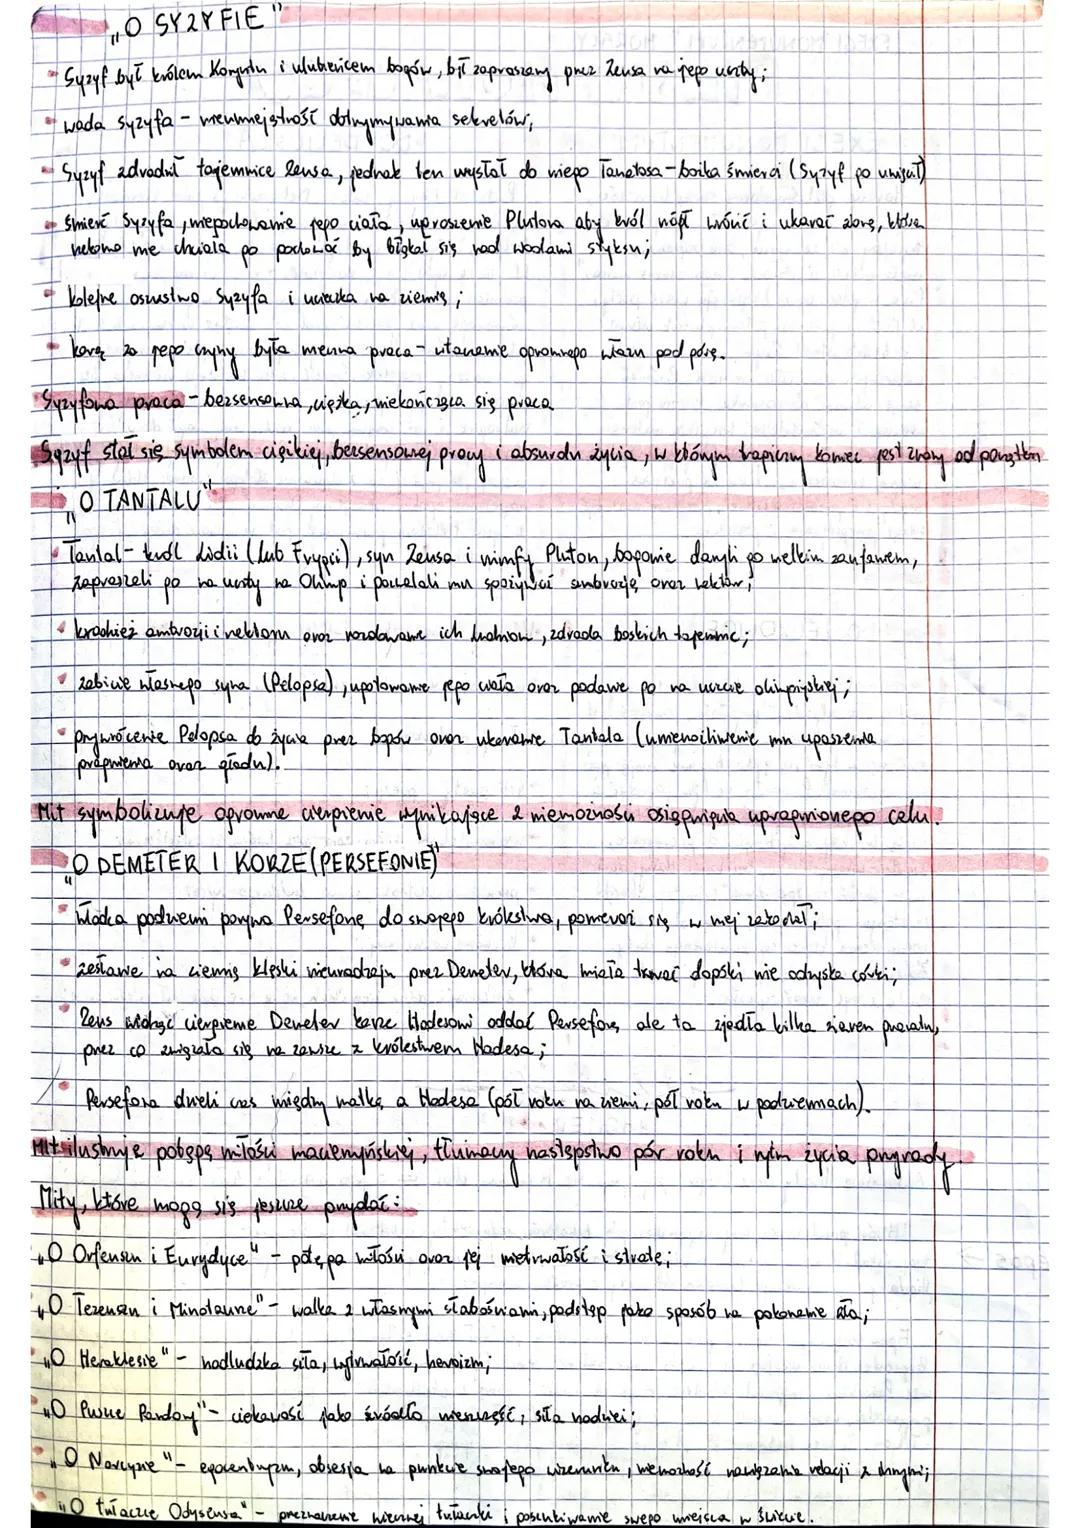 „O SYZYFIE"
Syzyf był królem Koryntu i ulubieńcem bogów, był zapraszany przez Zeusa na jego uczty;
wada syzyfa - nieumiejętność dotrzymywania sekretów;
Syzyf zdradził tajemnice Zeusa, jednak ten wysłał do niego Tanatosa - bożka śmierci (Syzyf go uwięził)
śmierć Syzyfa, niepochowanie jego ciała, uproszenie Plutona aby król mógł wrócić i ukarać żonę, która
nie chciała go pochować by błąkał się nad wodami styksu;
kolejne oszustwo Syzyfa i ucieczka na ziemię;
karą za jego czyny była mozolna praca - wtaczanie ogromnego głazu pod górę.
Syzyfowa praca - bezsensowna, ciężka, niekończąca się praca
Syzyf stał się symbolem ciężkiej, bezsensownej pracy i absurdu życia, w którym tragiczny koniec jest znany od początku
„O TANTALU"
Tantal - król Lidii (lub Frygii), syn Zeusa i nimfy Pluton, bogowie darzyli go wielkim zaufaniem,
zapraszali go na uczty na Olimp i pozwalali mu spożywać ambrozję oraz nektar;
kradzież ambrozji i nektaru oraz rozdawanie ich ludziom, zdrada boskich tajemnic;
zabicie własnego syna (Pelopsa), ugotowanie jego ciała oraz podanie go na uczcie olimpijskiej;
przywrócenie Pelopsa do życia przez bogów oraz ukaranie Tantala (uniemożliwienie mu ugaszenia
pragnienia oraz głodu).
Mit symbolizuje ogromne cierpienie wynikające z niemożności osiągnięcia upragnionego celu.
„O DEMETER I KORZE (PERSEFONIE)"
władca podziemi porywa Persefonę do swojego królestwa, ponieważ się w niej zakochał;
zesłanie na ziemię klęski nieurodzaju przez Demeter, która miała trwać dopóki nie odzyska córki;
Zeus widząc cierpienie Demeter każe Hadesowi oddać Persefonę, ale ta zjadła kilka ziaren granatu,
przez co związała się na zawsze z królestwem Hadesa;
Persefona dzieli czas między matkę a Hadesa (pół roku na ziemi, pół roku w podziemiach).
Mit ilustruje potęgę miłości macierzyńskiej, tłumaczy następstwo pór roku i rytm życia przyrody.
Mity, które mogą się jeszcze przydać:
„O Orfeuszu i Eurydyce" - potęga miłości oraz jej nietrwałość i stratę;
„O Tezeuszu i Minotaurze" - walka z własnymi słabościami, podstęp jako sposób na pokonanie zła;
„O Heraklesie" - nadludzka siła, wytrwałość, heroizm;
„O Puszce Pandory" - ciekawość jako źródło nieszczęść, siła nadziei;
„O Narcyzie" - egocentryzm, obsesja na punkcie swojego wizerunku, niemożność nawiązania relacji z innymi;
„O tułaczce Odyseusza" - przeznaczenie wiecznej tułaczki i poszukiwanie swego miejsca w świecie.